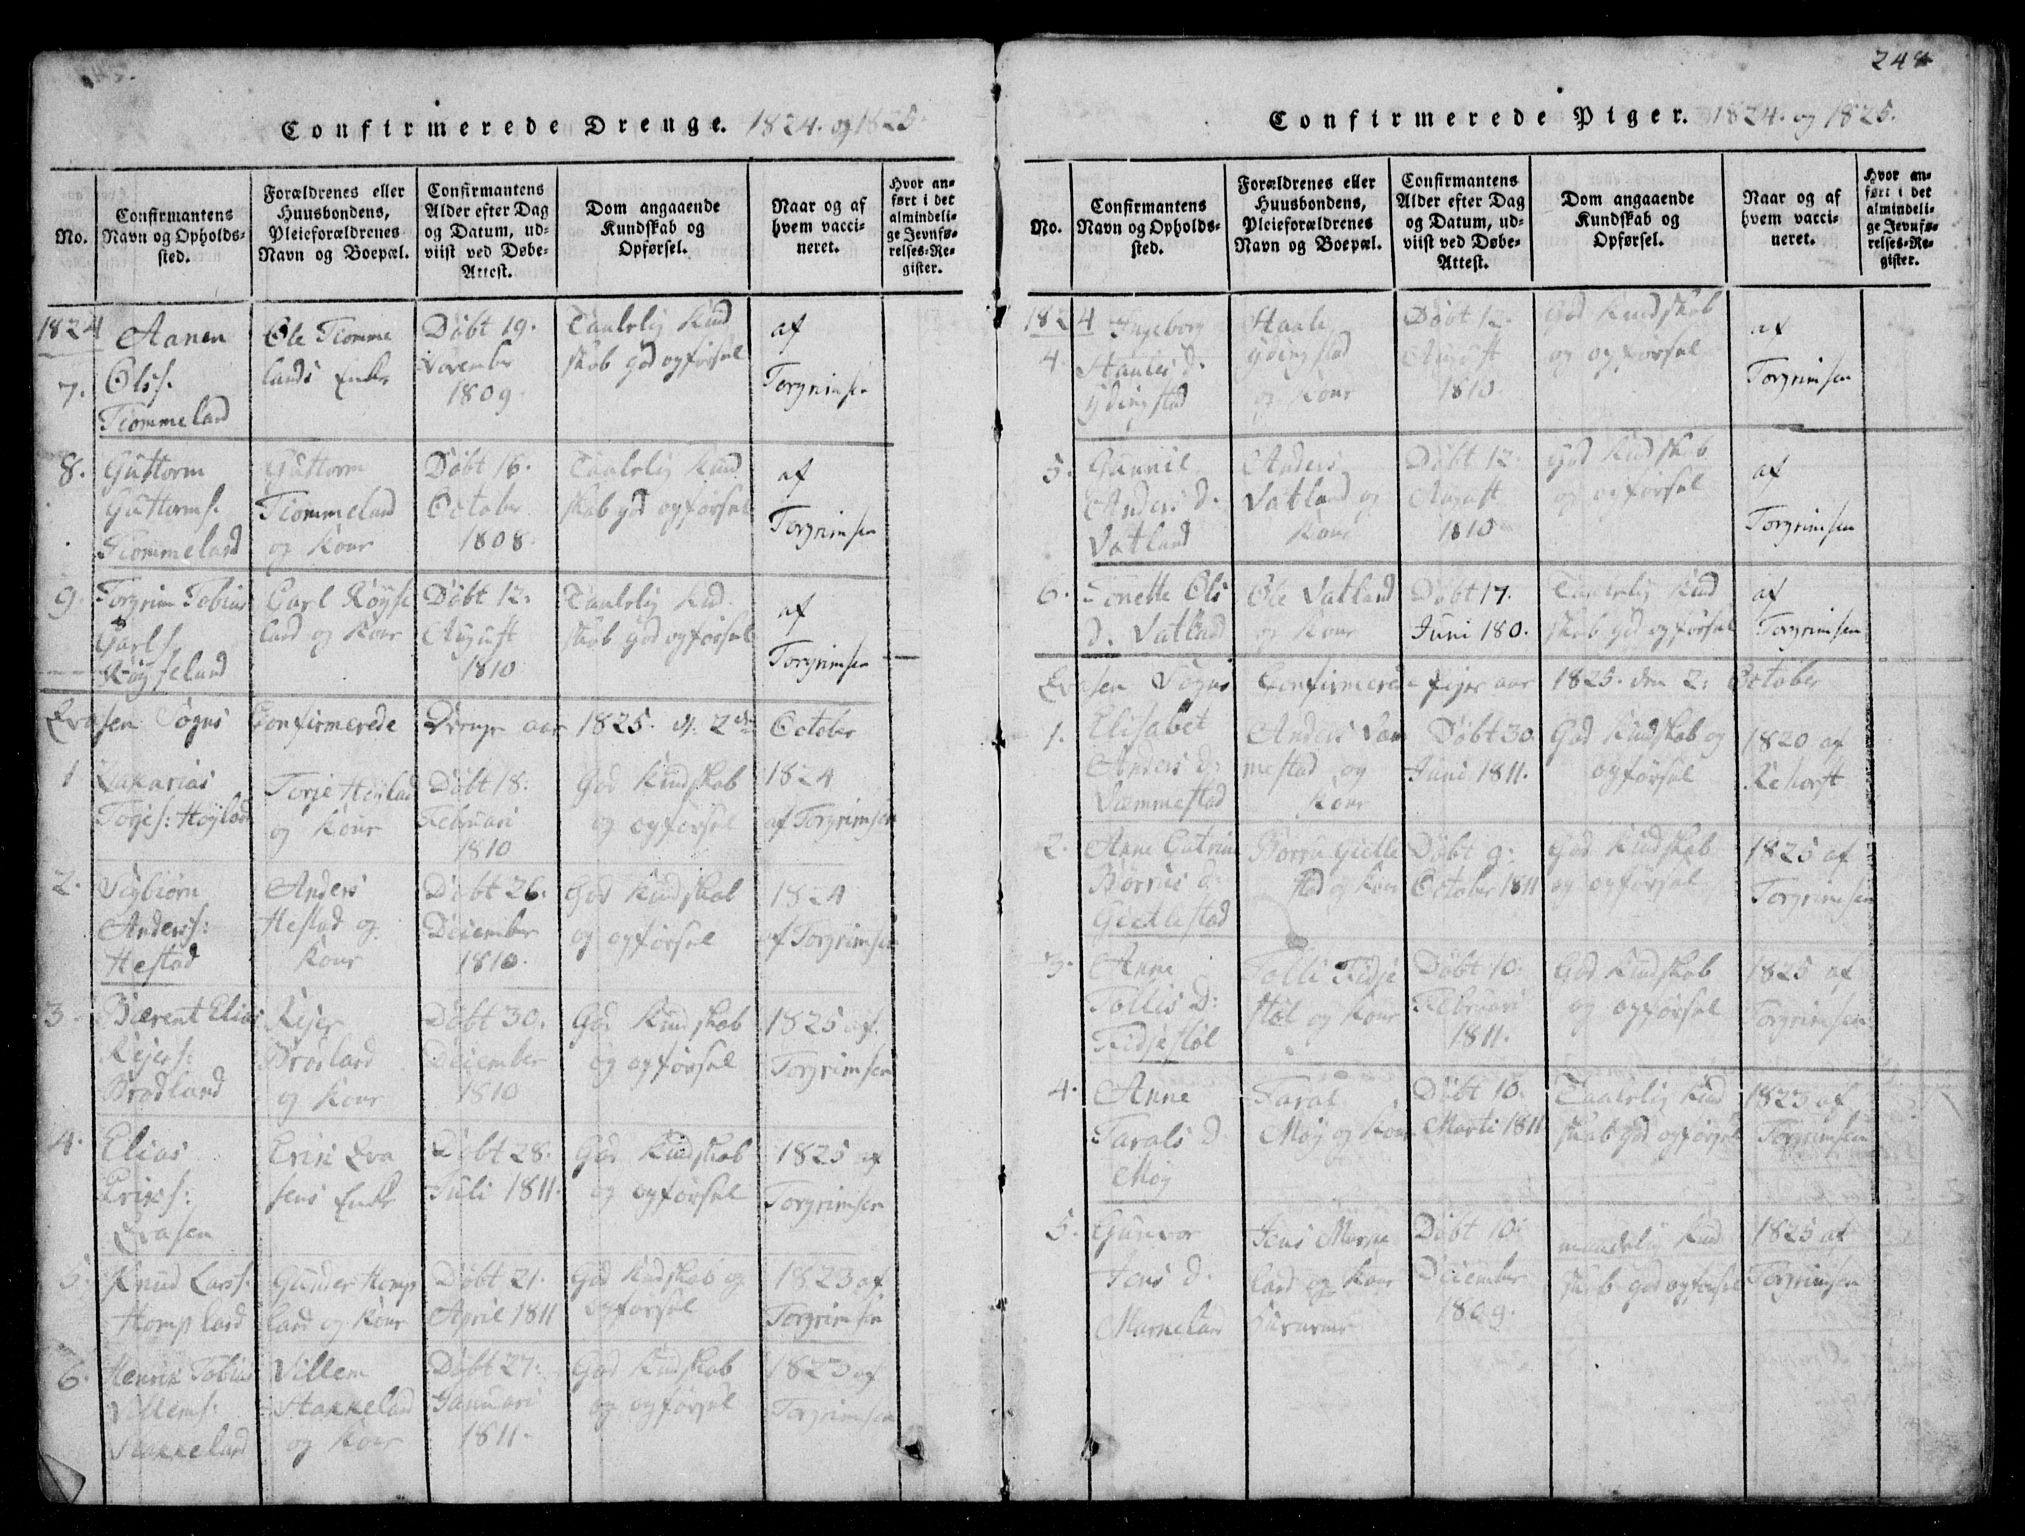 Confirmerede Drenge. 1824. og 1825.
No.
Confirmantens
Navn og Opholds-
sted.
Forældrenes eller
Huusbondens,
Pleieforældrenes
Navn og Boepæl.
Confirmantens
Alder efter Dag
og Datum, ud-
viist ved Døbe-
Attest.
Dom angaaende
Kundskab og
Opførsel.
Naar og af
hvem vacci-
neret.
Hvor an-
ført i det
almindeli-
ge Jevnfø-
relses-Re-
gister.
1824
7.
Aanen
Ols s.
Tiommeland
Ole Tiomme
lands Enke
Døbt 19.
November
1809.
Taalelig Kund
skab god opførsel
af
Torgrimsen
8.
Guttorm
Guttorms.
Tiommeland
Guttorm
Tiommeland
og Kone
Døbt 16.
October
1808.
Taalelig Kund
skab god opførsel
af
Torgrimsen
9.
Torgrim Tobias
Carls.
Røyseland
Carl Røyse
land og Kone
Døbt 12.
August
1810
Taalelig Kund
skab god opførsel
af
Torgrimsen
Evasen Sogns Confirmerede Drenge aar 1825. d. 2den October
1
Zakarias
Tories: Høyland
Torje Høiland
og Kone
Døbt 18.
Februari
1810
God Kundskab
og opførsel
1824
af Torgrimsen
2.
Sigbiørn
Anders s:
Hestad
Anders
Hestad og
Kone
Døbt 26.
December
1810.
God Kundskab
og opførsel
1824
af Torgrimsen
3.
Bærent Elias
Rejers:
Brodland
Rejer
Brodland
og Kone
Døbt 30.
December
1810
God Kundskab
og opførsel
1825 af
Torgrimsen
4.
Elias
Eriks:
Evasen
Erik Eva
sens Enke
Døbt 28.
Juli 1811.
God Kundskab
og opførsel
1825 af
Torgrimsen
5.
Knud Lars s.
Homp land
Gunder Homp
land og Kone
Døbt 21.
April 1811
God Kundskab og
opførsel
1823 af
Torgrimsen
6.
Henrik Tobias
Villems:
Stakkeland
Villem
Stakkeland
og Kone
Døbt 27.
Januari
1811.
God Kundskab
og opførsel
1823 af
Torgrimsen
248
Confirmerede Piger. 1824. og 1825.
No.
Confirmantens
Navn og Opholds-
sted.
Forældrenes eller
Huusbondens,
Pleieforældrenes
Navn og Boepæl.
Confirmantens
Alder efter Dag
og Datum, ud-
viist ved Døbe-
Attest.
Dom angaaende
Kundskab og
Opførsel.
Naar og af
hvem vacci-
neret.
Hvor an-
ført i det
almindeli-
ge Jevnfø-
relses-Re-
gister.
1824
4.
Ingeborg
Staales d.
Ydingstad
Staale
Ydingstad
og Kone
Døbt 12.
August
1810.
God Kundskab
og opførsel
af
Torgrimsen
5.
Gunnil
Anders d.
Vatland
Anders
Vatland og
Kone
Døbt 12.
August
1810
God Kundskab
og opførsel
af
Torgrimsen
6.
Tonette Ols
d. Vatland
Ole Vatland
og Kone
Døbt 17.
Juni 180.
Taalelig Kund
skab god opførsel
af
Torgrimsen
Evasen Sogns Confirmerede piger aar 1825. den 2. October
1.
Elisabet
Anders d:
Væmmestad
Anders Væm
mestad og
Kone
Døbt 30.
Juni 1811.
God Kundskab og
opførsel
1820 af
Rehorst
2.
Anne Catrine
Børrus d:
Gietlestad
Børru Gietle
stad og Kone
Døbt 9.
October 1811
God Kundskab
og opførsel
1825 af
Torgrimsen
3.
Anne
Tollis D:
Fidjestøl
Tolli Fidje
støl og Kone
Døbt 10.
Februari
1811.
God Kundskab
og opførsel
1825 af
Torgrimsen
4.
Anne
Tarals D.
Møy
Taral
Møy og Kone
Døbt 10.
Marti 1811
Taalelig Kund
skab god opførsel
1823 af
Torgrimsen
5.
Gunvor
Jens d.
Markeland
Jens Marke
land og Kone
Døbt 10.
December
1809.
maadelig Kund
skab god opførsel
1825 af
Torgrimsen